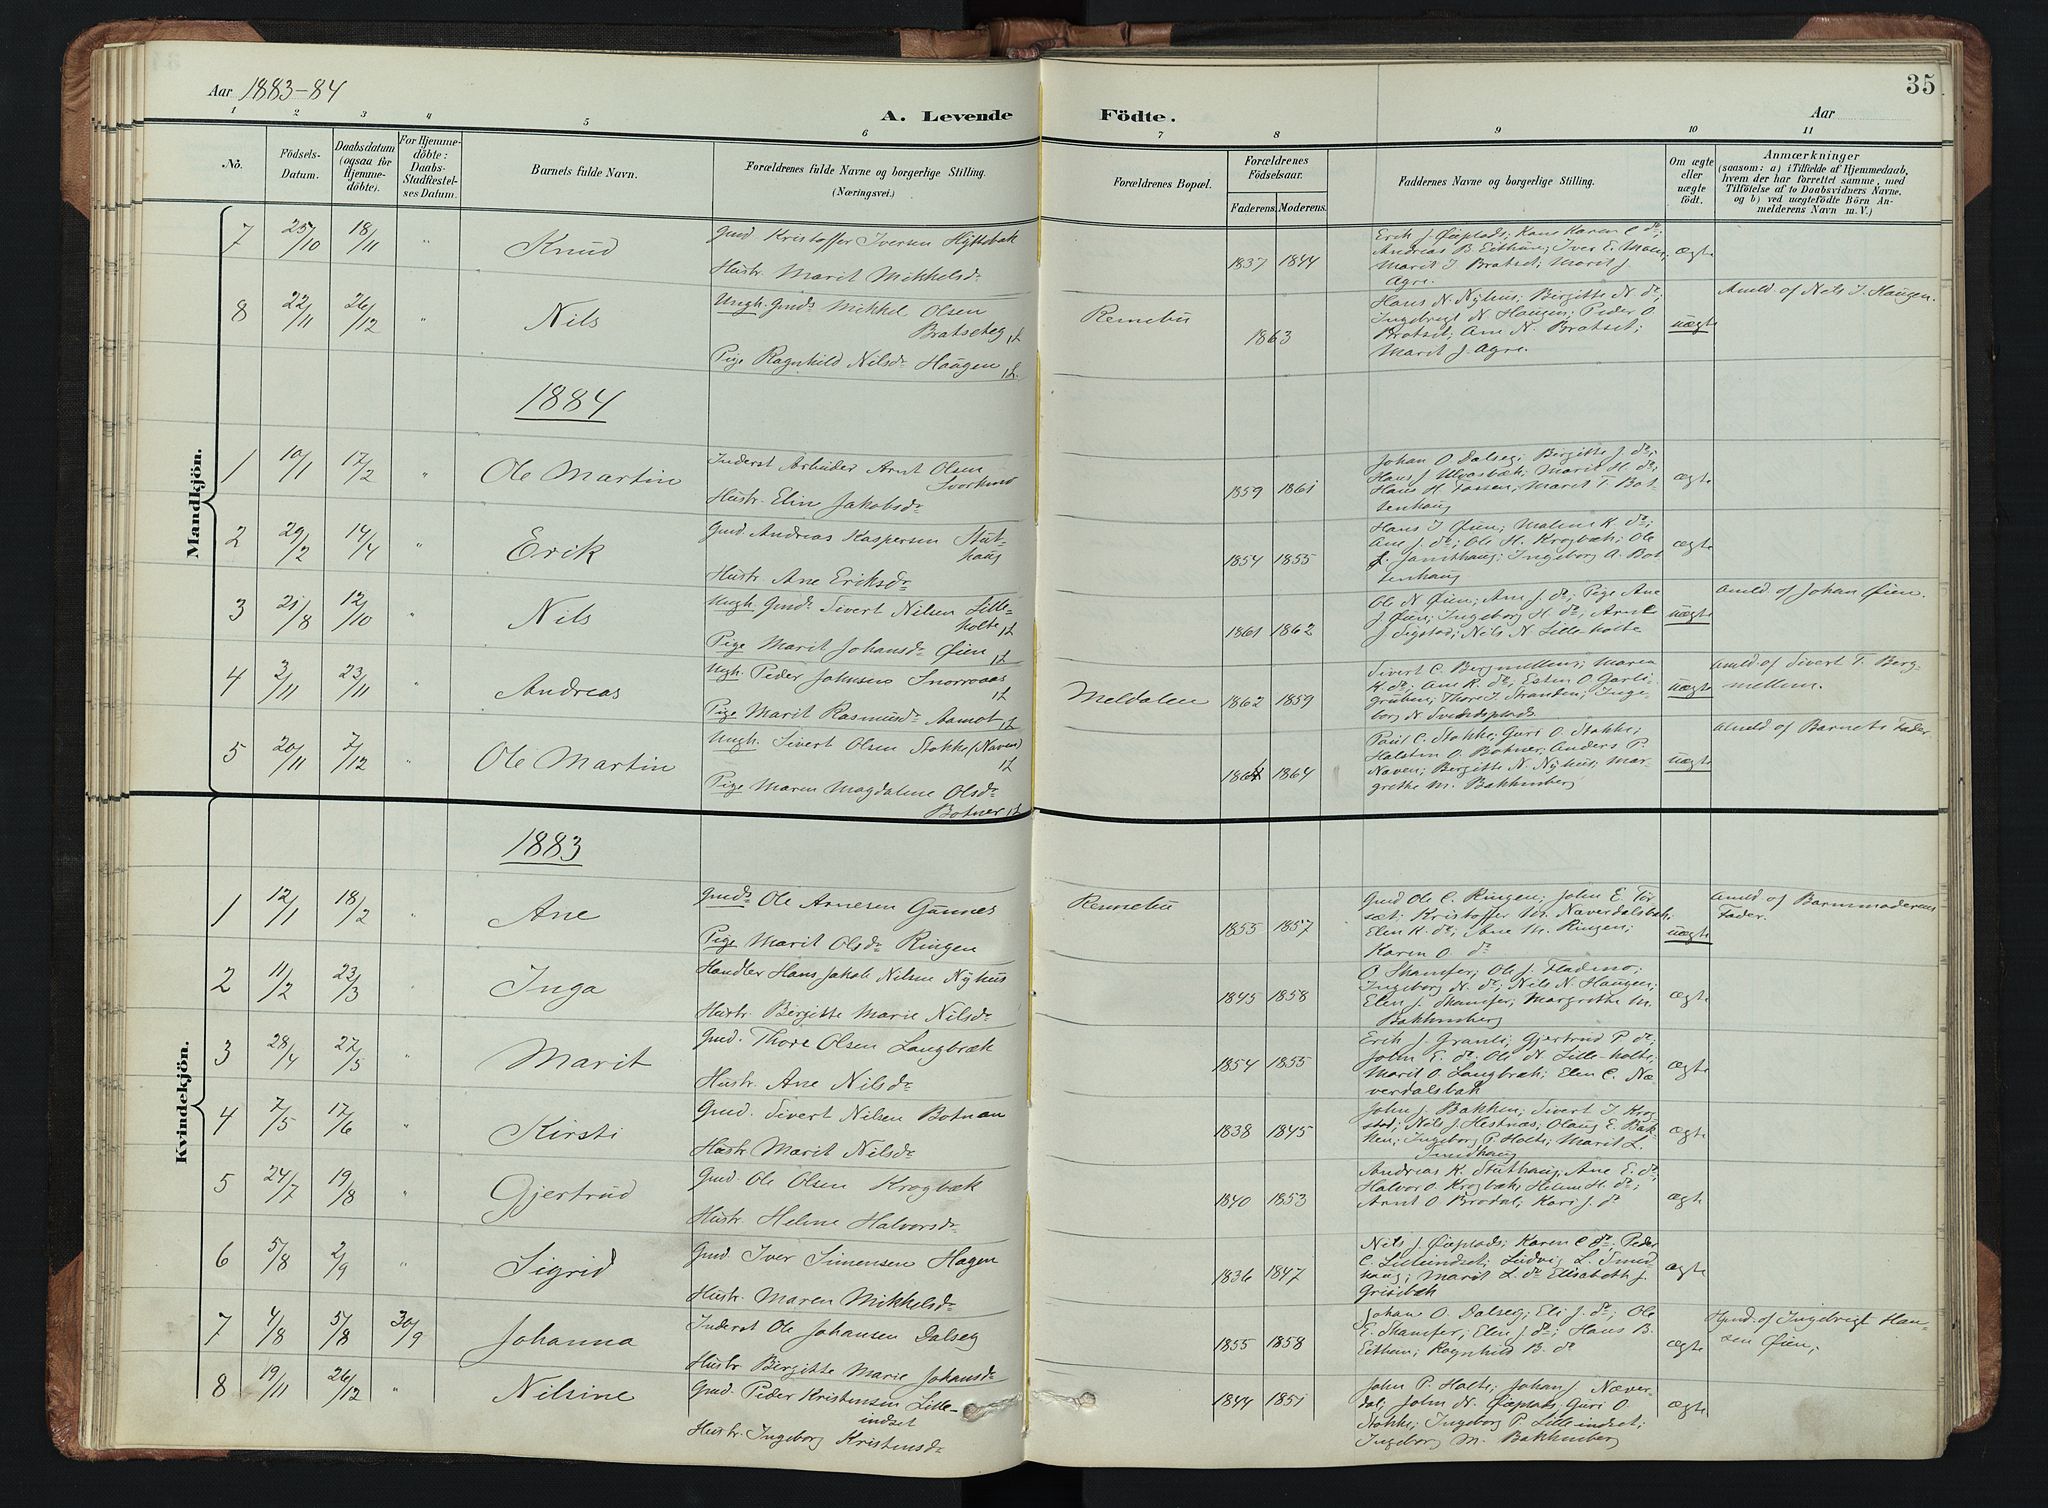 35
Aar 1883-84
A. Levende Födte.
Aar
1 2 3 4 5 6 7 8 9 10 11
No. Födsels-Datum. Daabsdatum (ogsaa for Hjemmedöbte). For Hjemmedöbte: Daabs-Stadfæstelses Datum. Barnets fulde Navn. Forældrenes fulde Navne og borgerlige Stilling. (Næringsvei.) Forældrenes Bopæl. Forældrenes Födselsaar. Faderens. Moderens. Faddernes Navne og borgerlige Stilling. Om ægte eller uægte födt. Anmærkninger (saasom: a) i Tilfælde af Hjemmedaab, hvem der har forrettet samme, med Tilföielse af to Daabsvidners Navne, og b) ved uægtefödte Börn Anmelderens Navn m. V.)
Mandkjön.
7 25/10 18/11 " Knud Gmd. Kristoffer Iversen Hyttebak
Hustr. Marit Mikkelsdr 1837 1844 Erik J. Øieplads; Kone Karen C. do;
Andreas B. Eithun; Iver E. Moen;
Marit I. Bratset; Marit J.
Agre. ægte
8 22/11 26/12 " Nils Ungk. Gmds Mikkel Olsen
Bratseteg 1L
Pige Ragnhild Nilsdr Haugen 1L. Rennebu 1863 Hans N. Nyhus; Bergitte N. do;
Ingebrigt N. Haugen; Peder O.
Bratset; Ane N. Bratset;
Marit J. Agre. uægte Anmld. af Nels I. Haugen.
1884
1 10/1 17/2 " Ole Martin Inderst Arbeider Arnt Olsen
Svorkmo
Hustr. Elin Jakobsdr 1859 1861 Johan O. Dalseg; Bergitte J. do;
Hans J. Ulvasbæk; Marit H. do;
Hans H. Fossen; Marit T. Bot-
tenhaug ægte
2 29/2 14/4 " Erik Gmd. Andreas Kaspersen Stut-
haug
Hustr. Ane Eriksdr 1854 1855 Hans I. Øien; Malene K. do;
Ane J. do; Ole H. Krogbæk; Ole
L. Jamthaug; Ingeborg A. Bot-
tenhaug ægte
3 21/8 12/10 " Nils Ungk. Gmds Sivert Nilsen Lille-
holte 1L
Pige Marit Johansdr Øien 1L 1861 1862 Ole N. Øien; Ane J. do; Pige Ane
J. Øien; Ingeborg H. do; Arnt
J. Sigstad; Nils N. Lille-holte uægte Anmld. af Johan Øien.
4 2/11 23/11 Andreas Ungk. Peder Johnsen Snorroas
1L
Pige Marit Rasmusdr Aamot 1L Meldalen 1862 1859 Sivert C. Bergmellem; Maren
K. do; Ane R. do; Esten O. Garli-
gruben; Thore I. Stranden; Inge-
borg N. Sveindsplads. uægte Anmld. af Sivert T. Berg-
mellem.
5 20/11 7/12 " Ole Martin Ungk. Sivert Olsen Stokke (Naven)
1L
Pige Maren Magdalene Olsdr
Botner 1L 1864 1864 Paul C. Stokke; Guri O. Stokke;
Halsten O. Botner; Anders P.
Naven; Bergitte N. Nyhus; Mar-
grethe M. Bakkenberg uægte Anmld. af Barnets Fader
Kvindekjön.
1883
1 12/1 18/2 Ane Gmds Ole Arnesen Gunnes
Pige Marit Olsdr Ringen Rennebu 1855 1857 Gmd Ole C. Ringen; John E. Tør-
sæt; Kristoffer M. Naverdalsbak;
Elen K. do; Ane M. Ringen;
Karen O. do uægte Anmld. af Barnmoderens
Fader.
2 11/2 23/3 Inga Handler Hans Jakob Nilsen Nyhus
Hustr. Bergitte Marie Nilsdr 1845 1858 O. Skamfer; Ole J. Fladmo;
Ingeborg N. do; Nils N. Haugen;
Elen J. Skamfer; Margrethe M.
Bakkenberg ægte
3 28/4 27/5 " Marit Gmd. Thore Olsen Langbræk
Hustr. Ane Nilsdr 1854 1855 Erik J. Granli; Gjertrud P. do;
John E. do; Ole N. Lille-holte;
Marit O. Langbræk; Elen C. Næ-
verdalsbak ægte
4 7/5 17/6 " Kirsti Gmd. Sivert Nilsen Botnan
Hustr Marit Nilsdr 1838 1845 John J. Bakken; Sivert I. Krog-
stad; Nils J. Hestnæs; Olaug E. Bak-
ken; Ingeborg P. Holte; Marit L.
Smidhaug ægte
5 24/7 19/8 " Gjertrud Gmd. Ole Olsen Krogbæk
Hustr. Helene Halvorsdr 1840 1853 Andreas K. Stuthaug; Ane E. do;
Halvor O. Krogbæk; Helene H. do;
Arnt O. Brodal; Kari J. do ægte
6 5/8 2/9 " Sigrid Gmd. Iver Simensen Hagen
Hustr. Maren Mikkelsdr 1836 1847 Nils J. Øieplads; Karen C. do; Peder
C. Lilleindset; Ludvig L. Smed-
haug; Marit L. do Elisabeth J.
Grisibæk ægte
7 4/8 5/8 30/9 Johanna Inderst Ole Johansen Dalseg
Hustr Bergitte Marie Johansdr 1855 1858 Johan O. Dalseg; Eli J. do; Ole
E. Skamfer; Elen J. do; Hans B.
Eithun; Ragnhild B. do ægte Hjmd. af Ingebrigt Han-
sen Øien,
8 19/11 26/12 " Nilsine Gmd. Peder Kristensen Lille-
indset
Hustr. Ingeborg Kristensdr 1844 1851 John P. Holte; Johan J. Næver-
dal; John N. Øieplads; Guri O.
Stokke; Ingeborg P. Lilleindset;
Ingeborg M. Bakkenberg ægte